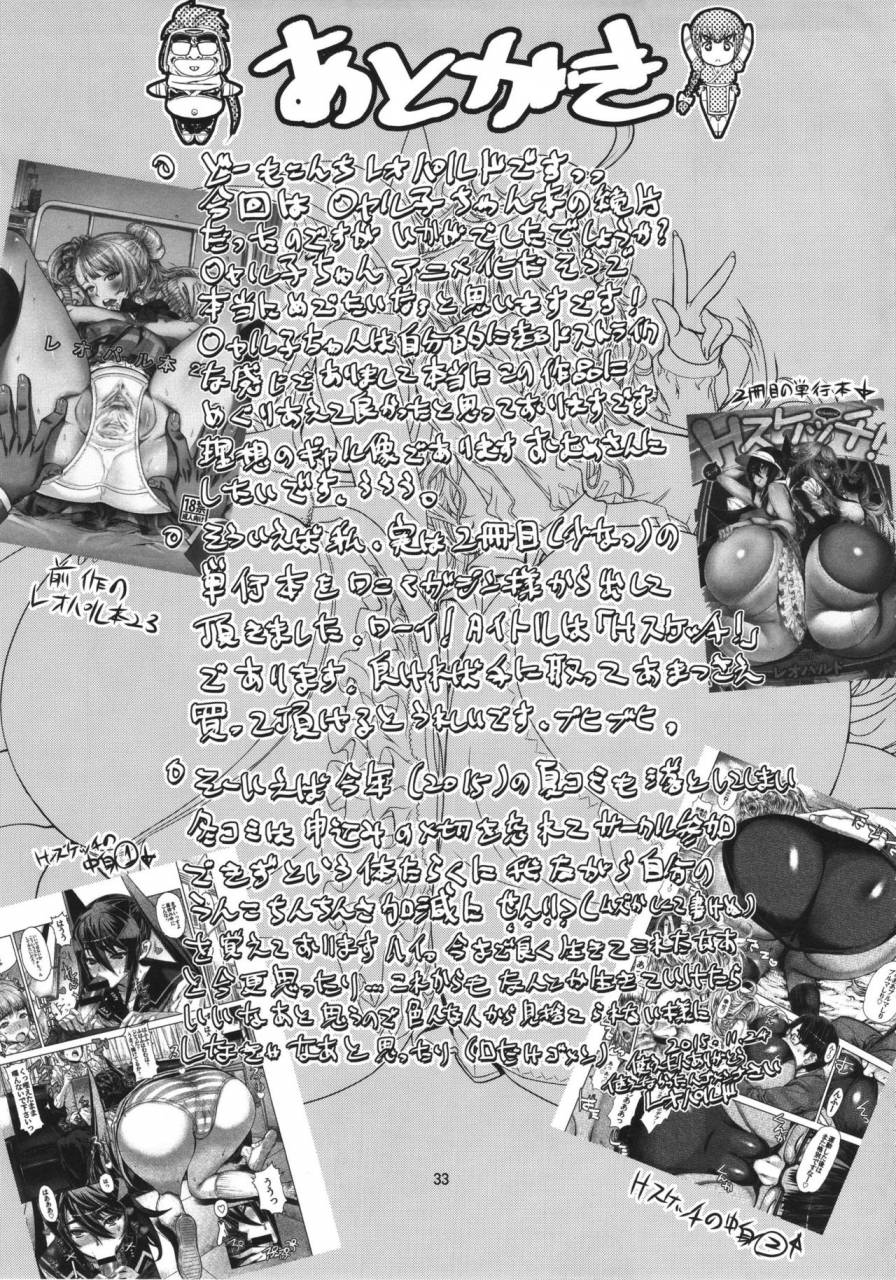 あとがき
どーもこんちレオパルドですっっ
今回は〇ャル子ちゃん本の続き
だったのですがいかがでしたでしょうか?
〇ャル子ちゃんアニメ化だそうで
本当にめでたいなっと思いますです!
〇ャル子ちゃんは自分的に超ドストライク
な感じでありまして本当にこの作品に
めぐりあえて良かったと思っておりますです
理想のギャル像であります
したいです。
そういえば私、実は2冊目(少なっ)の
単行本をワニマガジン様から出して
頂きました。ワーイ!タイトルは「Hスケッチ!」
であります。良ければ手に取ってあまつさえ
買って頂けるとうれしいです。ブヒブヒ。
そーいえば今年(2015)の夏コミも落としてしまい
冬コミは申込みの〆切を忘れてサークル参加
できずという体たらくに我ながら自分の
うんこちんちんさ加減に
を覚えておりますハイ。今まで良く生きてこれたなあ
と今更思ったり…これからもなんとか生きていけたら
いいなあと思うので色んな人から見捨てられない様に
しなきゃなあと思ったり(口だけゴメン)
2015.11.24
レオパルド
レオパル本
18禁
前作の
レオパル本23
2冊目の単行本
Hスケッチ!
レオパルド
Hスケッチの
中身①
くっ咥えたまま
噛んないで下さいっ
はぁぁぁっ
ううっ
んんっ
運動した後は
Hスケッチの中身②
33